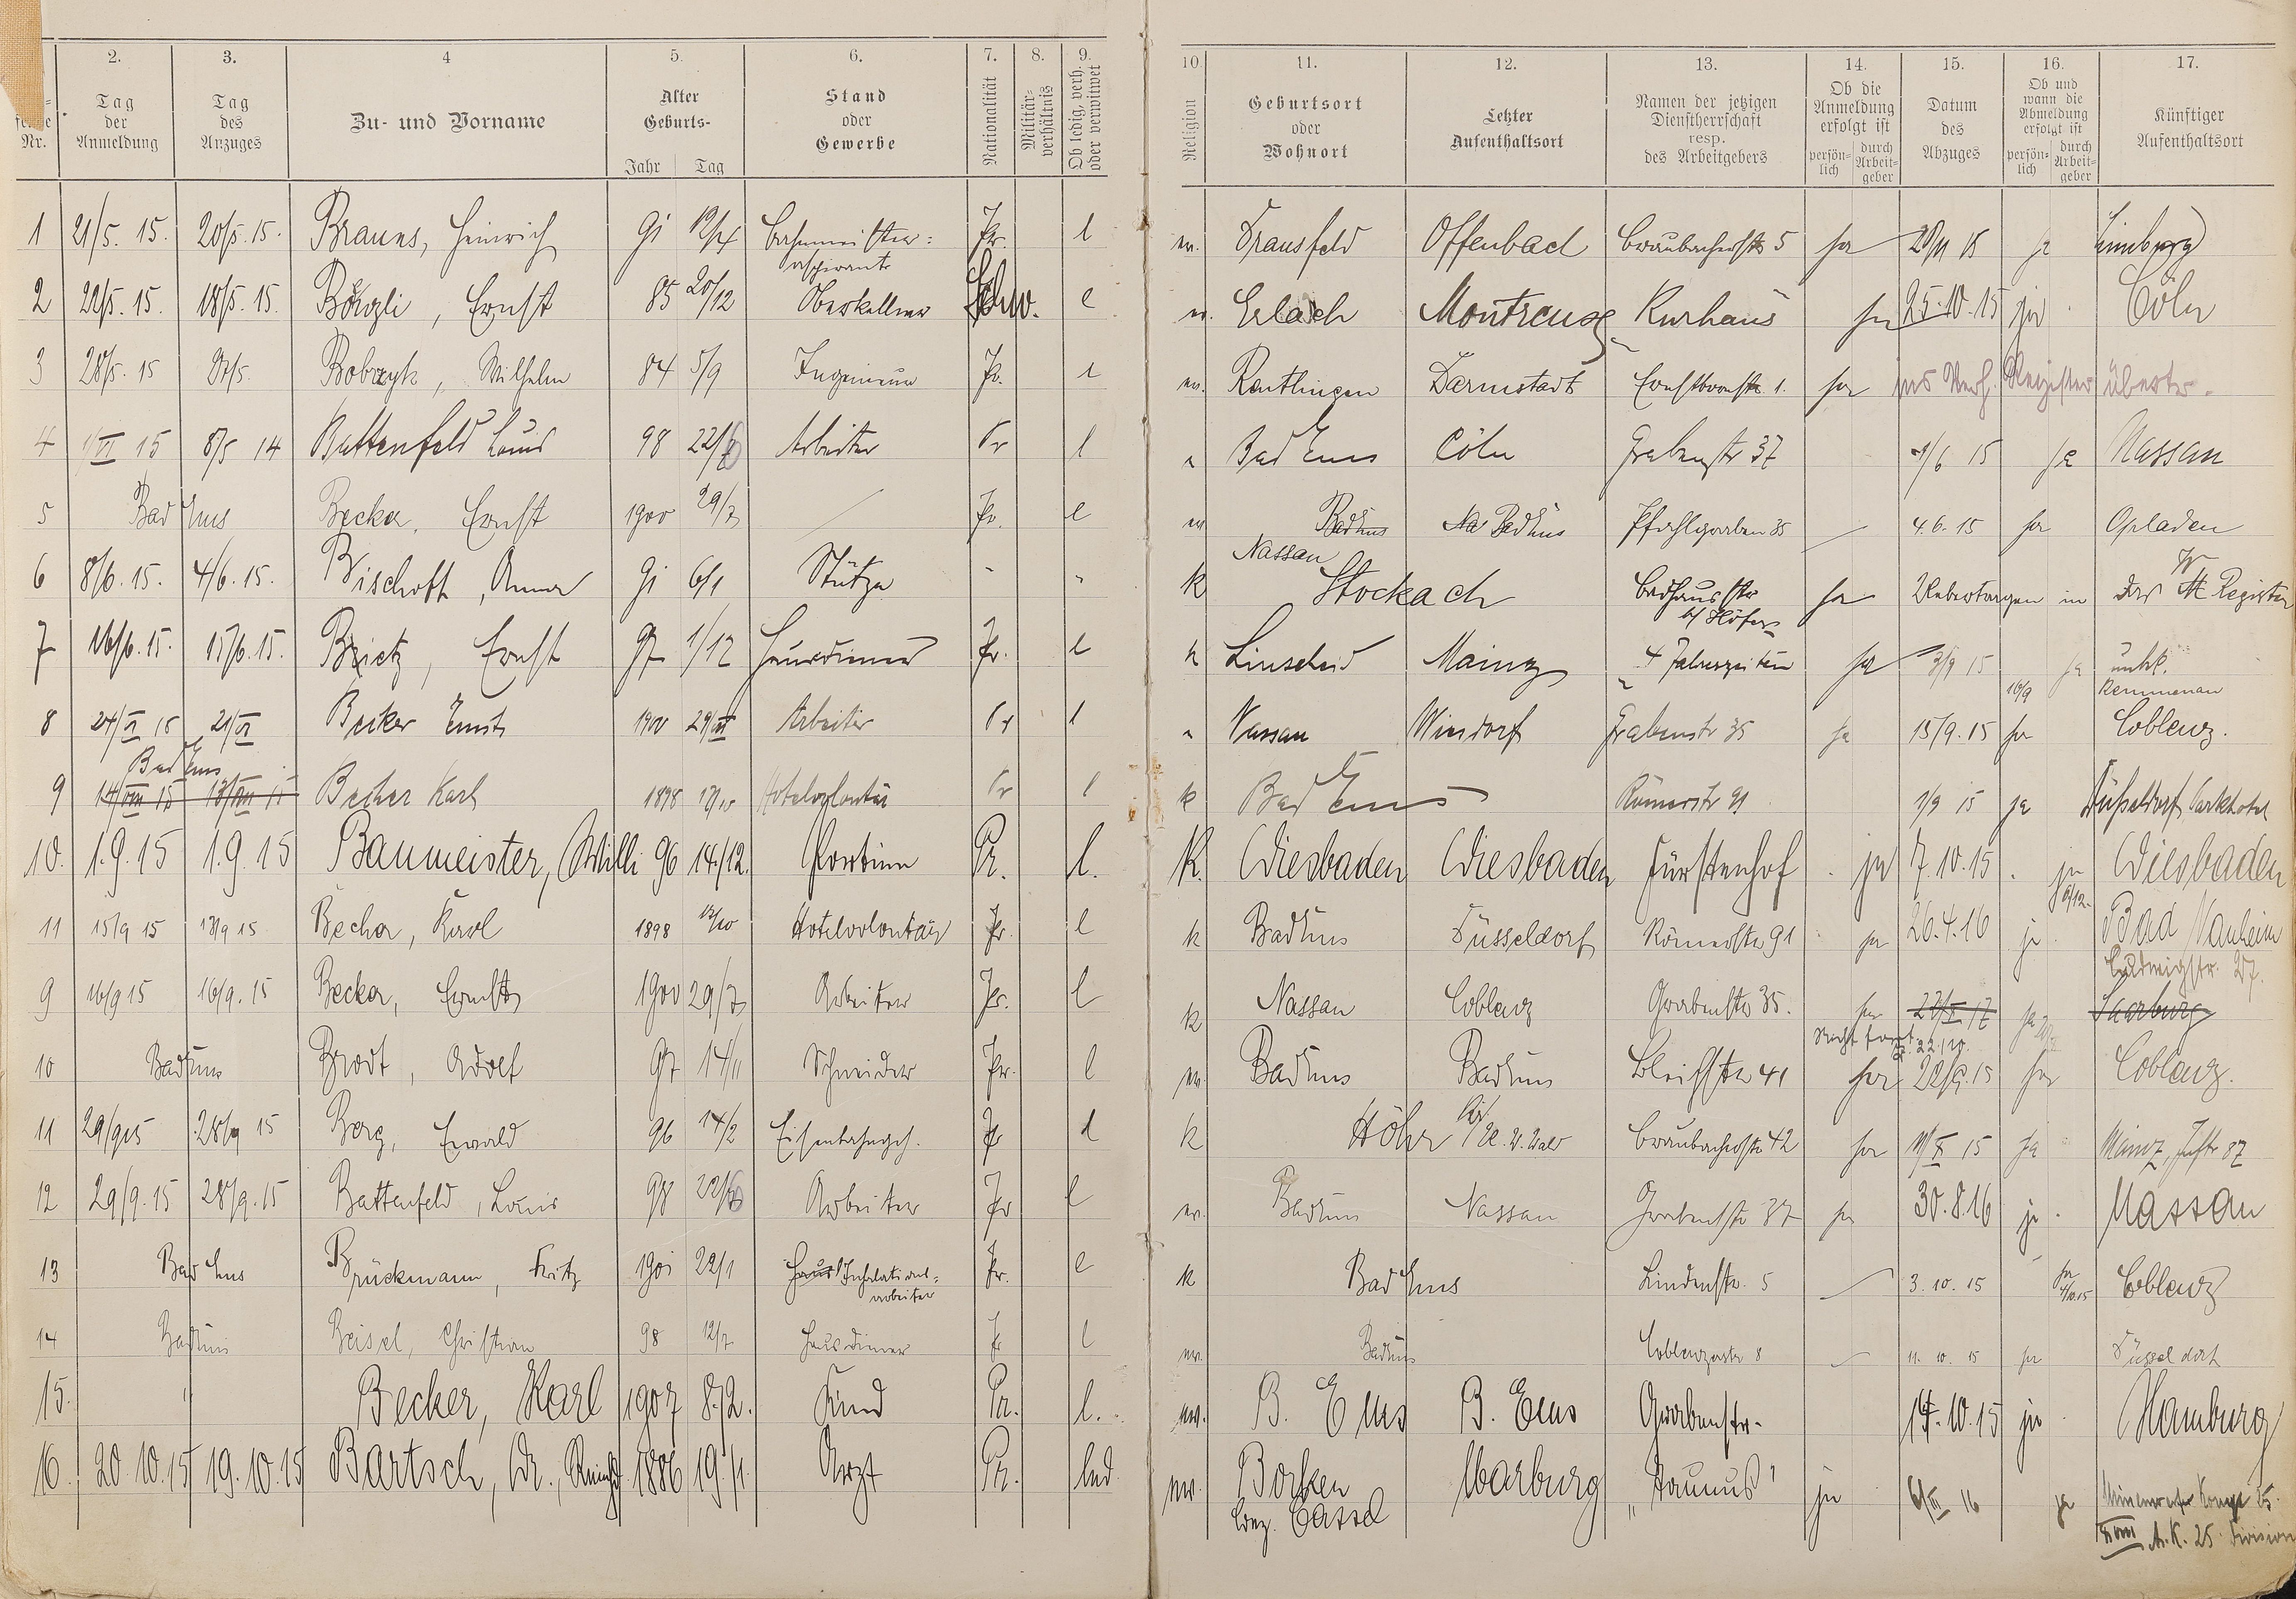 2. 3. 4 5. 6. 7. 8. 9. 10. 11. 12. 13. 14. 15. 16. 17.
Nr. Tag der Anmeldung Tag des Anzuges Zu- und Vorname Alter Geburts- Jahr Tag Stand oder Gewerbe Nationalität Militär-verhältnis Ob ledig, verh. oder verwitwet Religion Geburtsort oder Wohnort Letzter Aufenthaltsort Namen der jetzigen Dienstherrschaft resp. des Arbeitgebers Ob die Anmeldung erfolgt ist persön-lich durch Arbeit-geber Datum des Abzuges Ob und wann die Abmeldung erfolgt ist persön-lich durch Arbeit-geber Künftiger Aufenthaltsort
1 21/5. 15. 20/5. 15. Brauns, Heinrich 91 19/4 Bahnmeister-aspirant Pr. l ev. Dransfeld Offenbach Braubacherstr 5 ja 15 ja Limburg
2 22/5. 15. 18/5. 15. Ernst 85 20/12 Oberkellner Schw. l ev. Erlach Montreux Kurhaus ja 25.10.15 ja Cöln
3 28/5. 15 Bobrzyk, Wilhelm 84 5/9 Ingenieur Pr. ev. Reutlingen Darmstadt 1. ja ins Verh. Register übertr.
4 1/VI 15 8/5 14 Battenfeld Louis 98 22/6 Arbeiter Pr l Bad Ems Cöln Grabenstr 37 /6 15 ja Nassau
5 Bad Ems Becker, Ernst 1900 29/7 Pr. l Bad Ems Nassau Bad Ems Pfahlgraben 35 4.6.15 ja Opladen
6 8/6. 15. 4/6. 15. Bischoff, Anna 91 6/1 Stütze k Stockach Badhausstr b/ Höfer ja Uebertragen in das W Register
7 16/6. 15. 15/6. 15. Brietz, Ernst 97 1/12 Hausdiener Pr. l k Linscheid Mainz 4 Jahreszeiten ja 3/9 15 ja unbk. 16/9 Kemmenau
8 24/VI 15 21/VI Becker Ernst 1900 29/VII Arbeiter Pr l Nassau Windorf Grabenstr 35 ja 15/9. 15 ja Coblenz.
9 Bad Ems 14/VIII 15 13/VIII 15 Becher Karl 1898 13/10 Hotelvolontär Pr l k Bad Ems Römerstr 91 1/9 15 ja Düsseldorf, Parkhotel
10. 1.9.15 1.9.15 Baumeister, Willi 96 14./12. Portier Pr. l. K. Wiesbaden Wiesbaden Fürstenhof ja 7.10.15. ja Wiesbaden
11 15/9 15 13/9 15 Becher, Karl 1898 13/10 Hotelvolontär Pr. l k Bad Ems Düsseldorf Römerstr 91 ja 26.4.16 ja Bad Nauheim Ludwigstr. 27.
9 16/9 15 16/9. 15 Becker, Ernst 1900 29/7 Arbeiter Pr. l k Nassau Coblenz Grabenstr 35. ja 17 ja Saarburg
Nicht fort
10 Bad Ems Brodt, Adolf 97 14/11 Schneider Pr. l ev. Bad Ems Bad Ems Bleichstr 41 ja 22/9. 15 ja Coblenz.
11 29/9 15 28/9 15 Berg, Ewald 96 14/2 Eisenbahngeh. Pr l k Höhr Braubacherstr 42 ja 11/X 15 ja Mainz, 87
12 29/9. 15 28/9. 15 Battenfeld, Louis 98 22/6 Arbeiter Pr l ev. Bad Ems Nassau Grabenstr 37 ja 30.8.16 ja. Nassau
13 Bad Ems Brückmann, Fritz 1901 22/1 Haus Inhalations-arbeiter Pr. l k Bad Ems Lindenstr. 5 3. 10. 15 ja 4/10.15 Coblenz
14 Bad Ems Beisel, Christian 98 12/7 Hausdiener Pr l ev. Bad Ems Coblenzerstr 8 11. 10. 15 ja Düsseldorf
15. " Becker, Karl 1907 8./2. Kind Pr. l. ev. B. Ems B. Ems Grabenstr. 14.10.15 ja Hamburg
16. 20.10.15 19.10.15 Bartsch, Dr., 1886 19./1. Arzt Pr. led. ev. Borken Bez. Cassel Marburg "Taunus" ja 6/III 16 ja Minenwerfer Komp 25. XVIII A.K. 25. Division